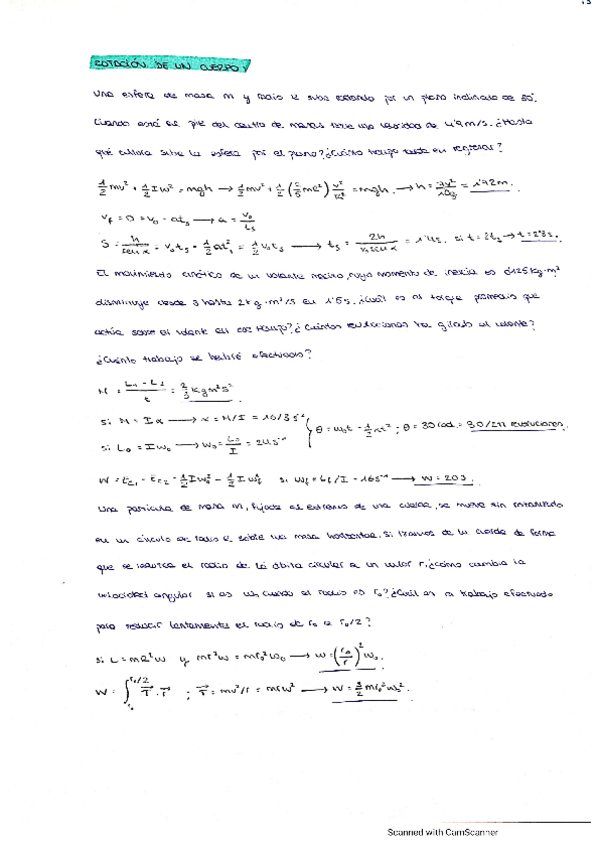 ROTACIÓN DE UN CUERPO:
Una esfera de masa m y radio R sube rodando por un plano inclinado de 30°.
Cuando está al pie del centro de masas tiene una velocidad de 4'9 m/s. ¿Hasta
qué altura sube la esfera por el plano? ¿Cuánto tiempo tarda en regresar?
½mv² + ½Iω² = mgh → ½mv² + ½(2/5 mR²) v²/R² = mgh → h = 7v²/10g = 1'72m.
v_f = 0 = v₀ - at_s → a = v₀/t_s
S = h/sen α = v₀t_s - ½at_s² = ½v₀t_s → t_s = 2h/v₀ sen α = 1'4s. si t = 2t_s → t = 2'8s.
El movimiento cinético de un volante macizo, cuyo momento de inercia es 0'125 kg·m²
disminuye desde 3 hasta 2 kg·m²/s en 1'5s. ¿Cuál es el torque promedio que
actúa sobre el volante en ese tiempo? ¿Cuántas revoluciones ha girado el volante?
¿Cuánto trabajo se habrá efectuado?
M = = 2/3 kg m² s⁻²
si M = Iα → α = M/I = 16/3 s⁻²
si L₀ = Iω₀ → ω₀ = L₀/I = 24 s⁻¹ } θ = ω₀t - ½αt²; θ = 30 rad. = 30/2π revoluciones.
W = E_c1 - E_c2 = ½Iω₀² - ½Iω_f² si ω_f = L_f/I = 16 s⁻¹ → W = 20J.
Una partícula de masa m, fijada al extremo de una cuerda, se mueve sin
en un círculo de radio R sobre una mesa horizontal. Si tiramos de la cuerda de forma
que se reduzca el radio de la órbita circular a un valor r, ¿cómo cambia la
velocidad angular si es ω₀ cuando el radio es r₀? ¿Cuál es el trabajo efectuado
para reducir lentamente el radio de r₀ a r₀/2?
si L = mR²ω y mr²ω = mr₀²ω₀ → ω = (r₀/r)² ω₀.
W = ∫ r₀ r₀/2 T · r ; T = mv²/r = mrω² → W = 3/2 mr₀²ω₀².
Scanned with CamScanner